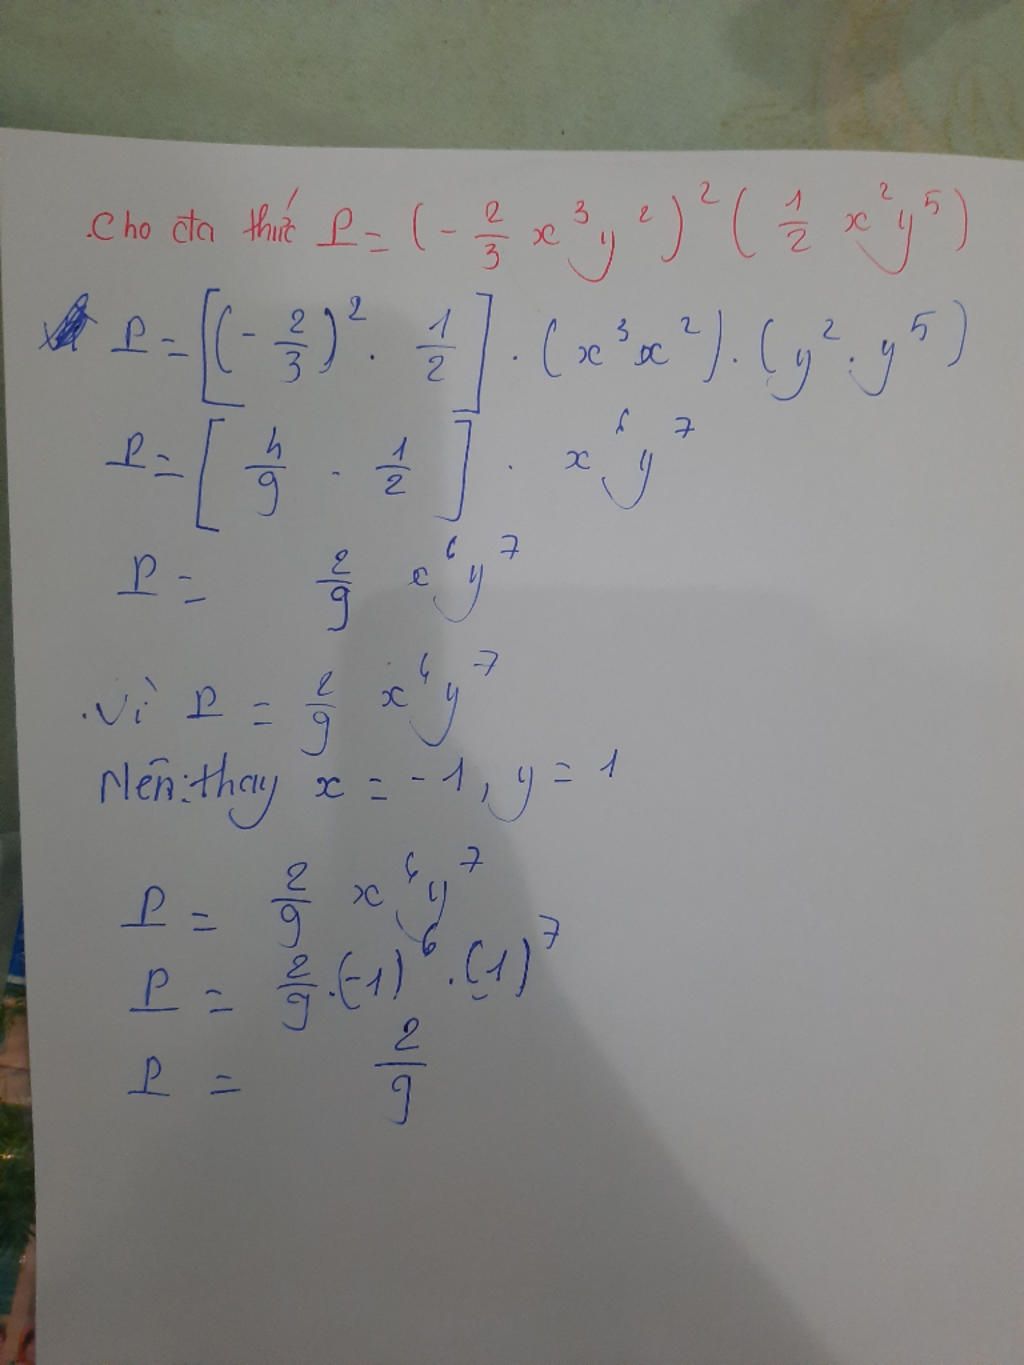 .Cho đa thức P = (- 2/3 x³y²)² (1/2 x²y⁵)
P = [(- 2/3)² . 1/2] . (x³x²) . (y² . y⁵)
P = [4/9 . 1/2] . x⁶y⁷
P = 2/9 x⁶y⁷
.Vì P = 2/9 x⁶y⁷
Nên: thay x = -1, y = 1
P = 2/9 x⁶y⁷
P = 2/9 . (-1)⁶ . (1)⁷
P = 2/9